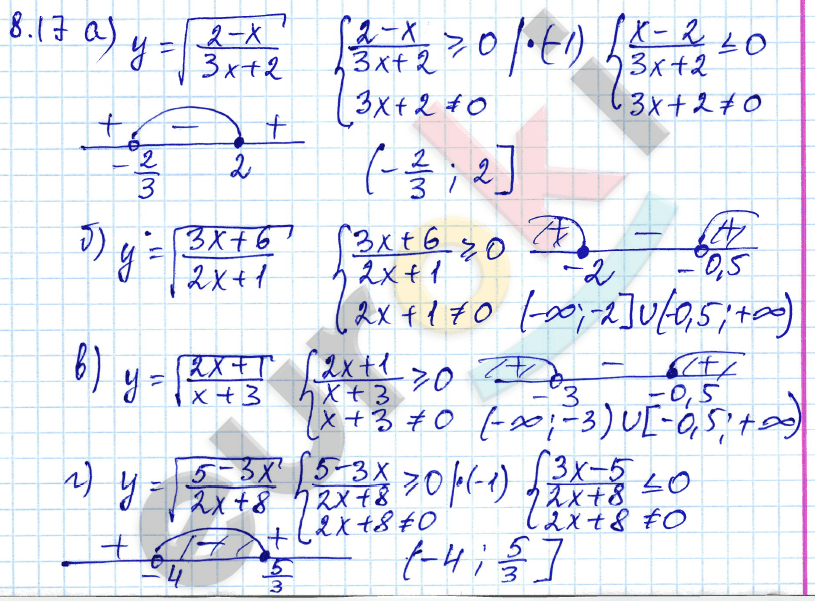 8.17 а) y = √((2-x)/(3x+2)) { (2-x)/(3x+2) ≥ 0 |·(-1) { (x-2)/(3x+2) ≤ 0
3x+2 ≠ 0 3x+2 ≠ 0
+ − +
-2/3 2 (-2/3 ; 2]
б) y = √((3x+6)/(2x+1)) { (3x+6)/(2x+1) ≥ 0 + − +
-2 -0,5
2x+1 ≠ 0 (-∞; -2] ∪ (-0,5; +∞)
в) y = √((2x+1)/(x+3)) { (2x+1)/(x+3) ≥ 0 + − +
-3 -0,5
x+3 ≠ 0 (-∞; -3) ∪ [-0,5; +∞)
г) y = √((5-3x)/(2x+8)) { (5-3x)/(2x+8) ≥ 0 |·(-1) { (3x-5)/(2x+8) ≤ 0
2x+8 ≠ 0 2x+8 ≠ 0
+ − +
-4 5/3 (-4 ; 5/3]
euroki